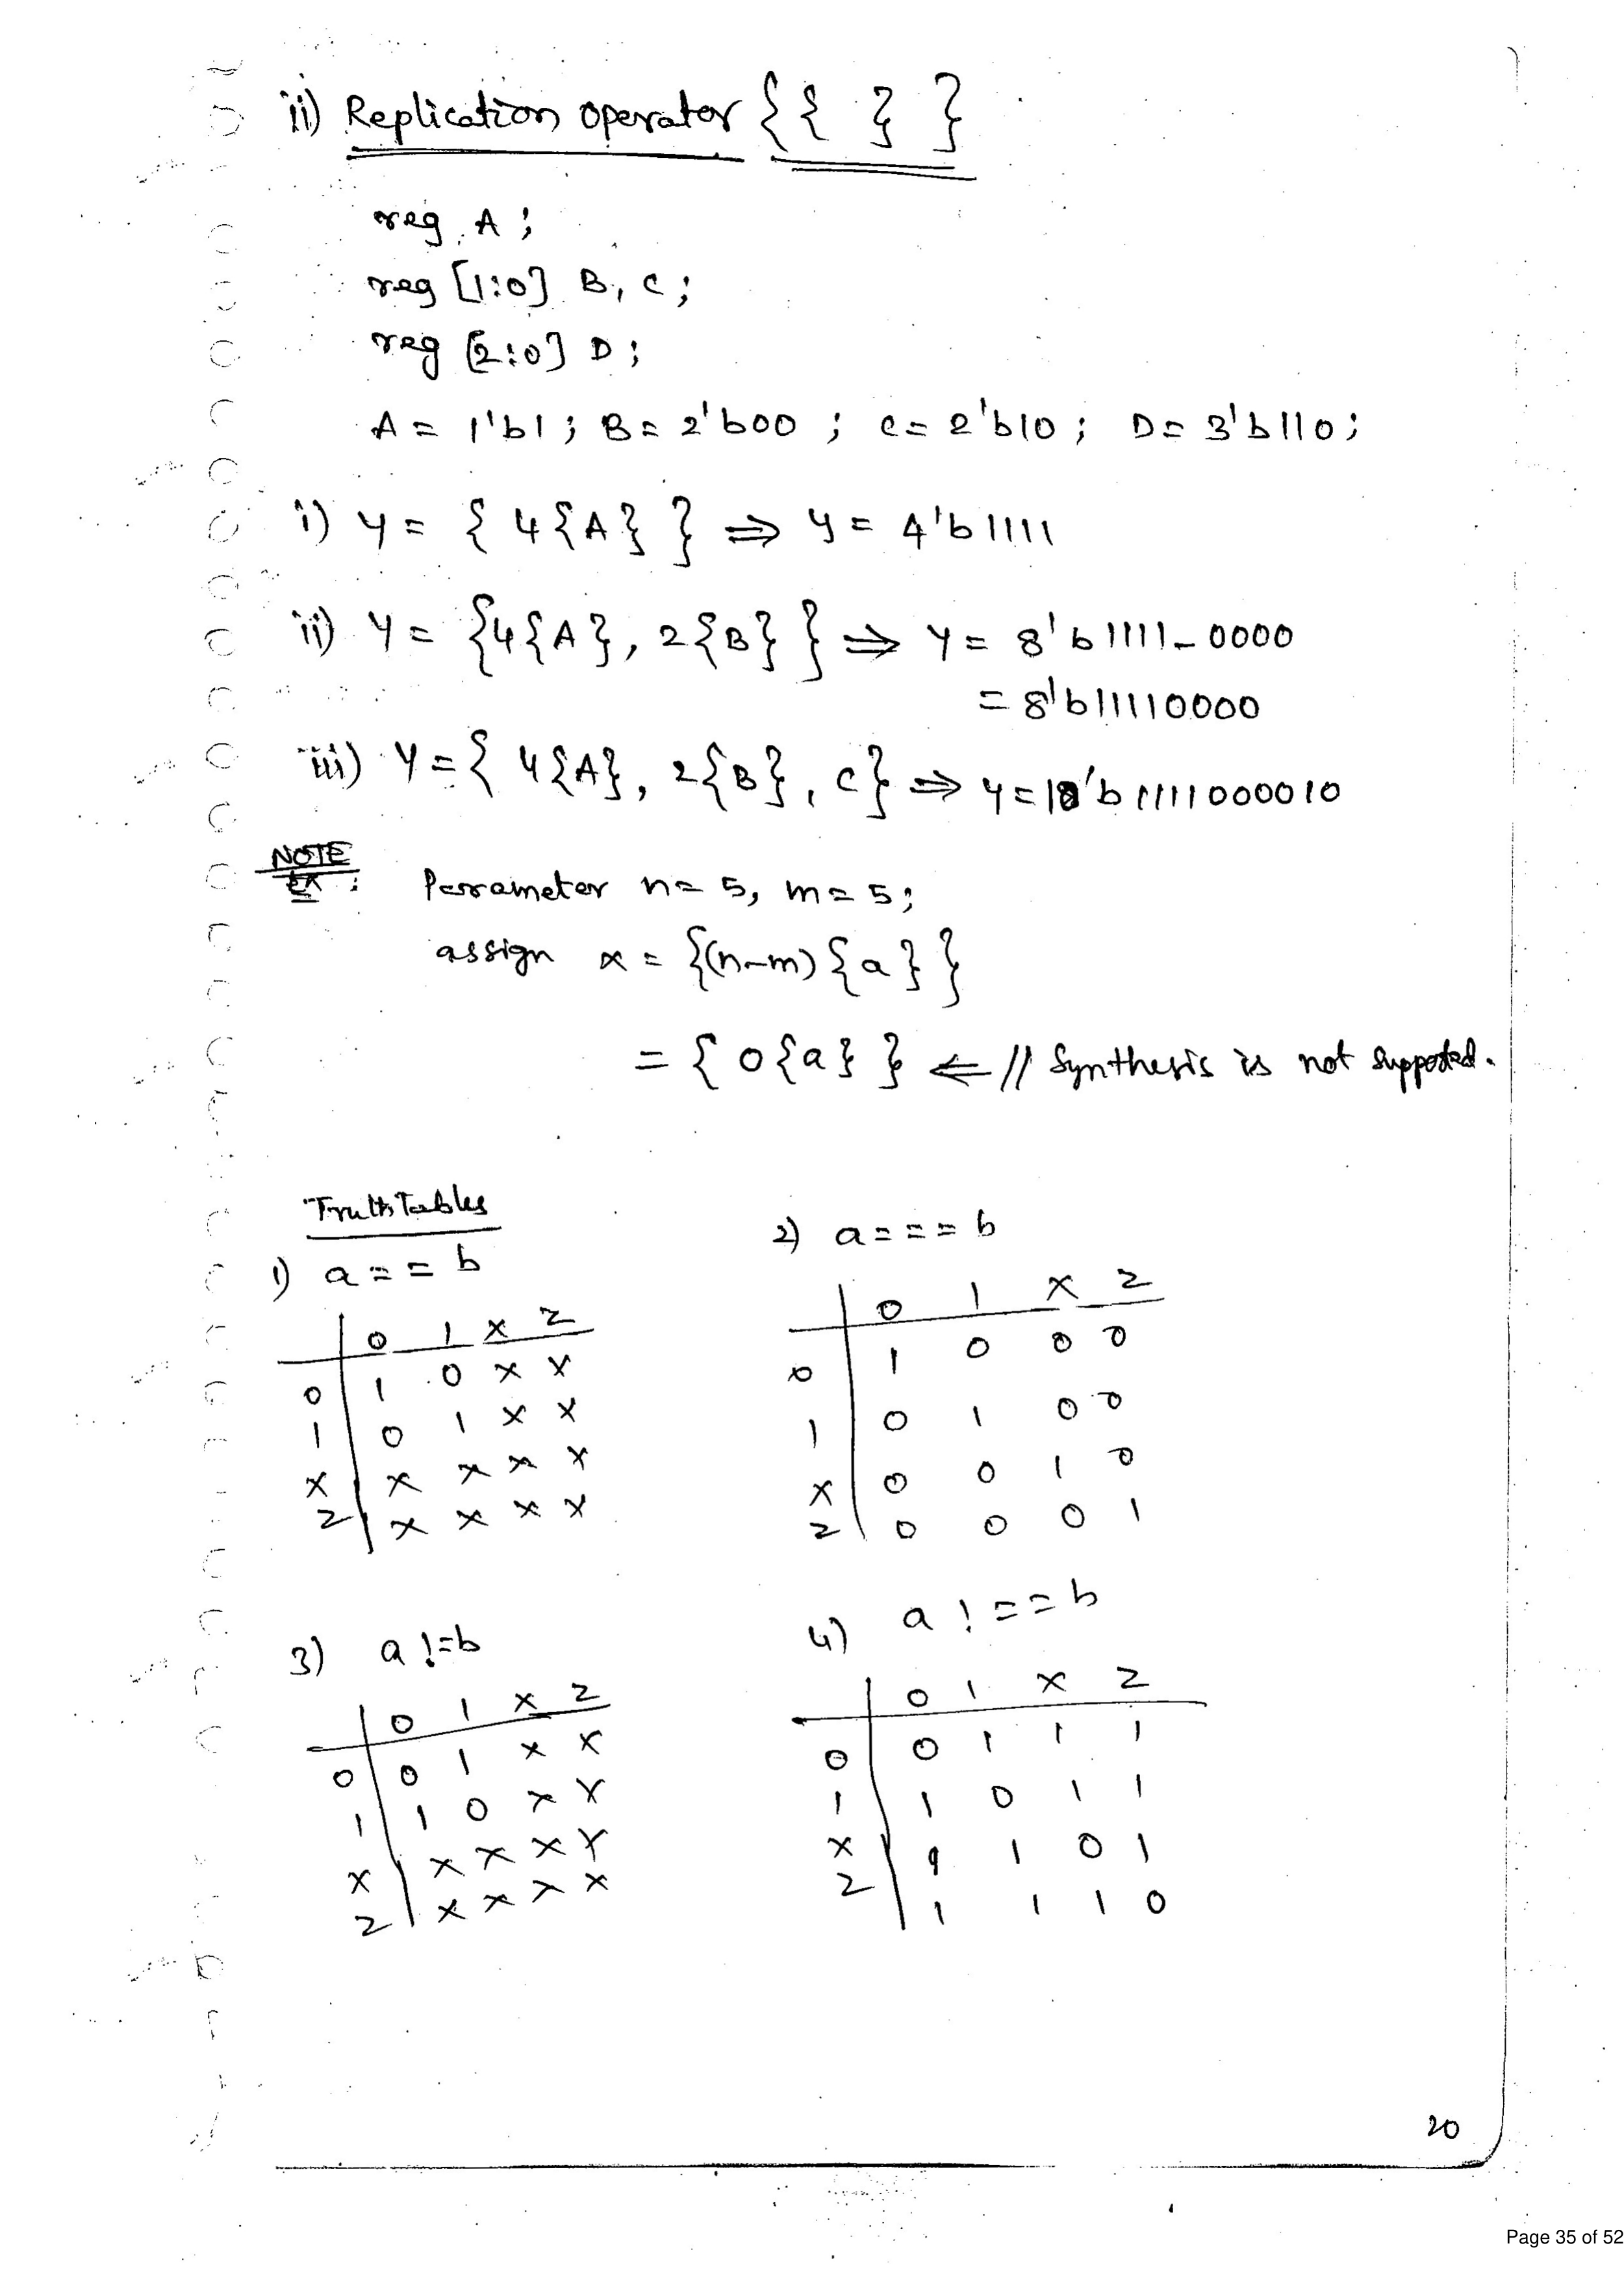 ii) Replication operator { { } }
reg A ;
reg [1:0] B, C ;
reg [2:0] D ;
A = 1'b1 ; B = 2'b00 ; C = 2'b10 ; D = 3'b110 ;
i) Y = { 4{A} } ⇒ Y = 4'b1111
ii) Y = {4{A}, 2{B} } ⇒ Y = 8'b1111_0000
= 8'b11110000
iii) Y = { 4{A}, 2{B}, C} ⇒ Y = 10'b1111000010
NOTE
Ex : Parameter n = 5, m = 5;
assign x = {(n-m) {a} }
= { 0{a} } ⇐ // Synthesis is not supported.
Truth Tables
1) a = = b
0 1 x z
0 1 0 x x
1 0 1 x x
x x x x x
z x x x x
2) a = = = b
0 1 x z
0 1 0 0 0
1 0 1 0 0
x 0 0 1 0
z 0 0 0 1
3) a != b
0 1 x z
0 0 1 x x
1 1 0 x x
x x x x x
z x x x x
4) a ! = = b
0 1 x z
0 0 1 1 1
1 1 0 1 1
x 1 1 0 1
z 1 1 1 0
20
Page 35 of 52